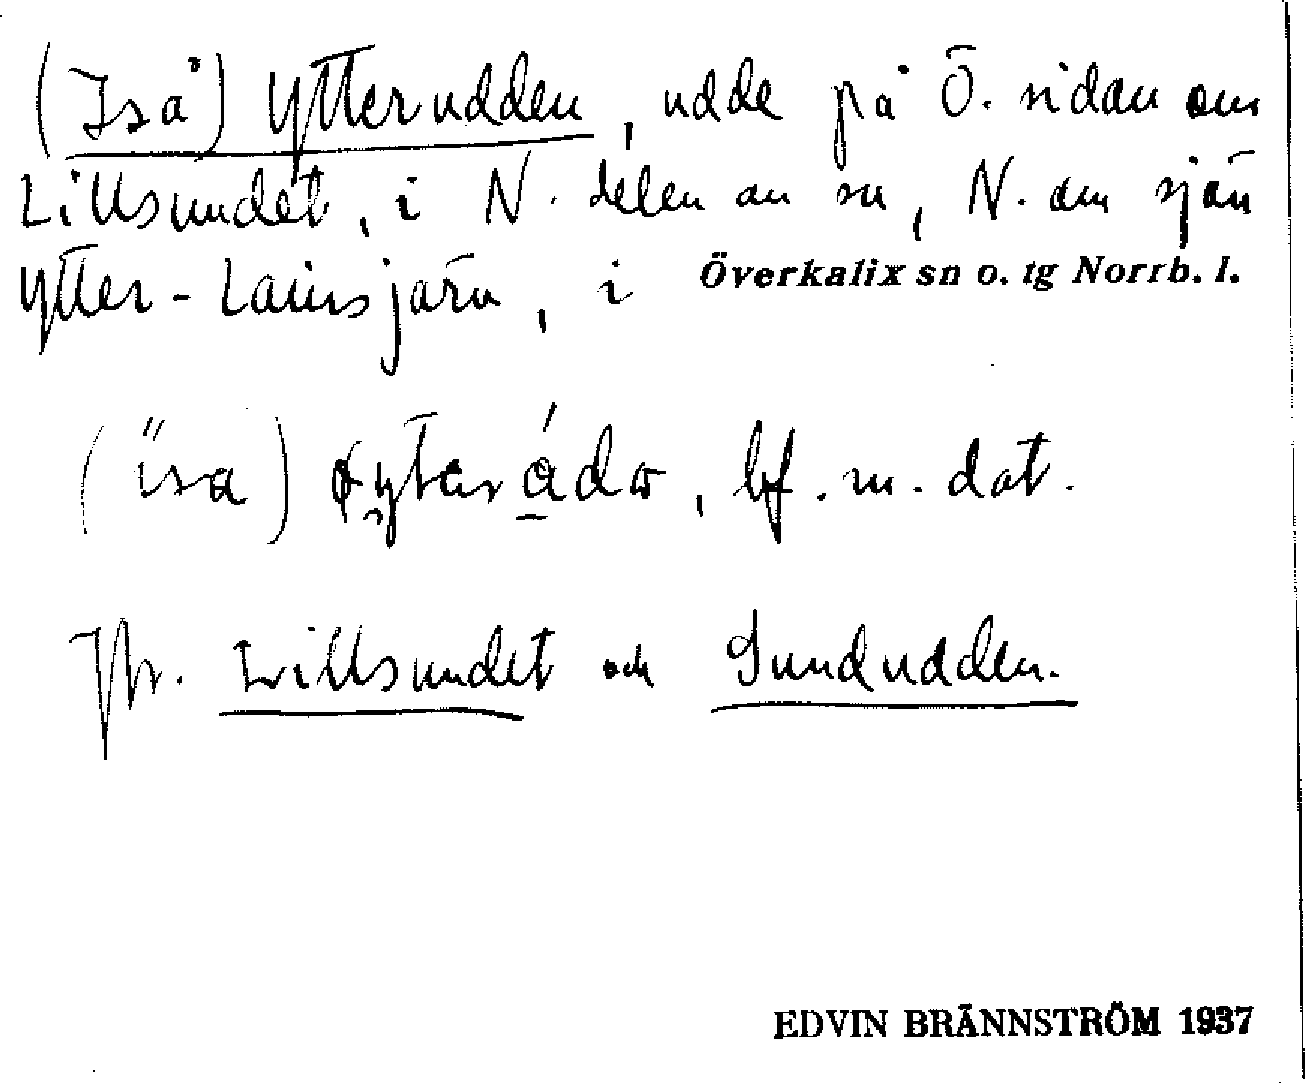 (Iså) Ytterudden, udde på Ö. sidan om
Lillsundet, i N. delen av sn, N. om sjön
Ytter-Lansjärv, i Överkalix sn o. tg Norrb. l.
bf. m. dat.
Jfr. Lillsundet och Sundudden.
EDVIN BRÄNNSTRÖM 1937